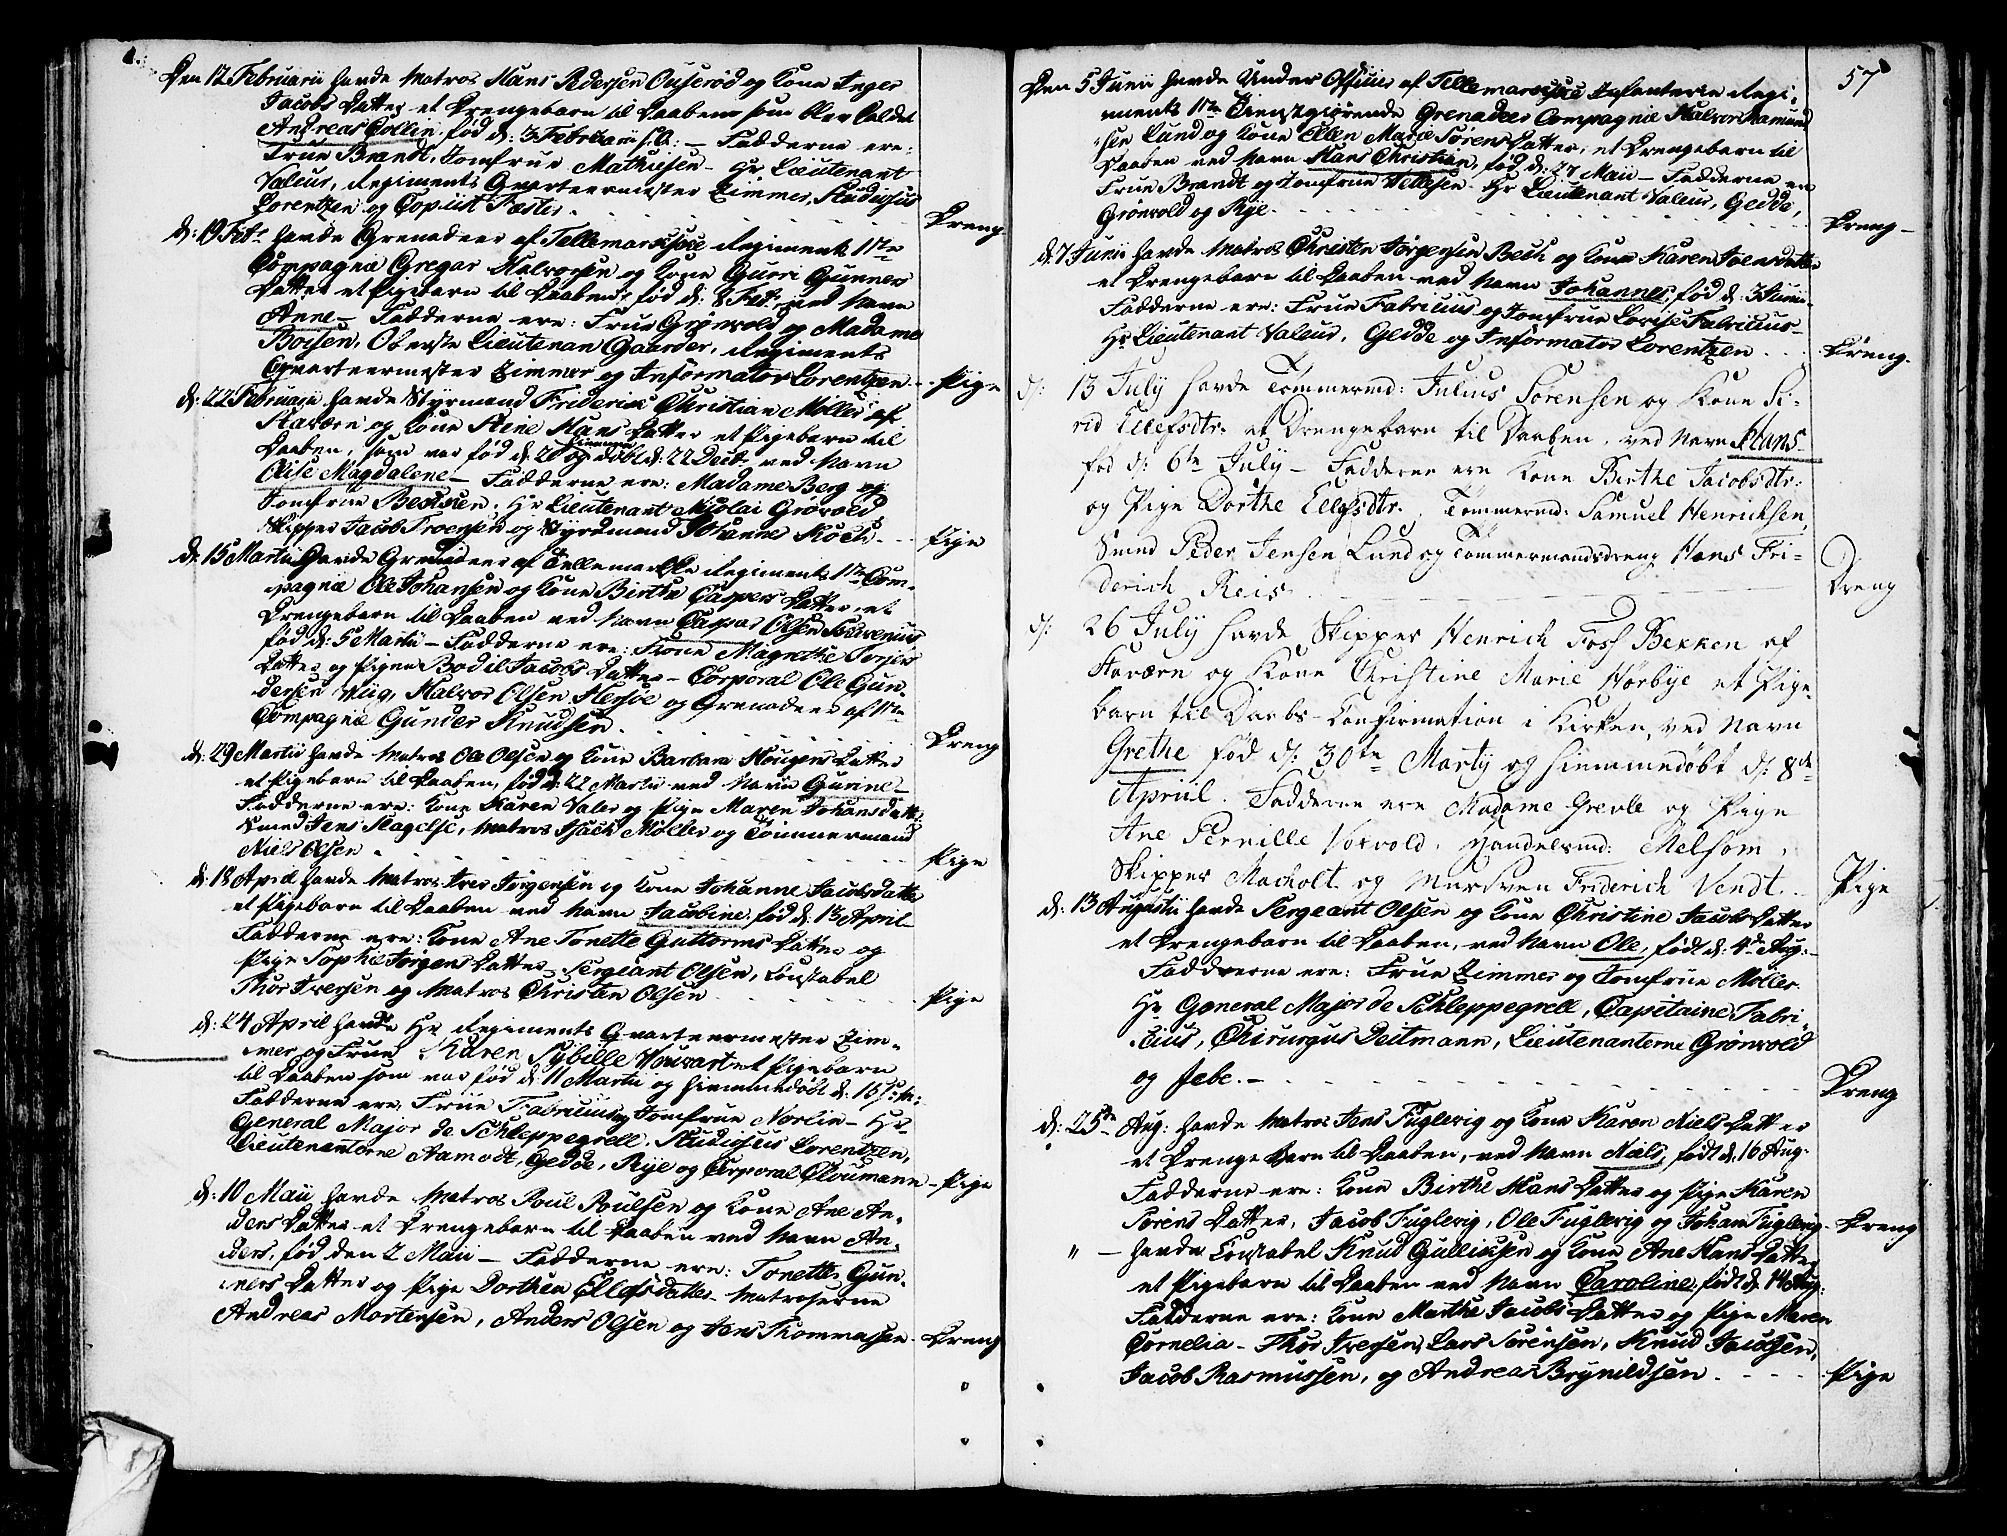 Den 12 Februarii havde Matros Hans Pedersen Ouserød og Kone Inger
Jacobs Datter et Drengebarn til Daaben som blev Caldet
Andreas Collin, fød d: 3 Februarii s.A: — Fadderne ere:
Frue Brandt, Jomfrue Mathiesen — Hr Lieutenant
Valeur, Regiments Qvarteermester Zimmer, Studiosus
Lorentzen og Copiist Fæster. Dreng
d: 19 Febr havde Grenadeer af Tellemarkske Regiments 1ste
Compagnie Gregar Halvorsen og Kone Guori Gunners
Datter et Pigebarn til Daaben, fød d: 8 Febr: ved Navn
Anne — Fadderne ere: Frue Grønvold og Madame
Boysen, Oberste Lieutenan Gaarder, Regiments
Qvarteermester Zimmer og Informator Lorentzen — Pige
d: 22 Februarii havde Styrmand Friderik Christian Møller af
Staværn og Kone Stine Hans Datter et Pigebarn til
Daaben, som var fød d: 20 og hiemme døbt d: 22 Decbr ved Navn
Elise Magdalene — Fadderne ere: Madame Berg og
Jomfrue Bechsen, Hr Lieutenant Nicolai Grøvold
Skipper Jacob Troensen og Styrdmand Johannes Koch — Pige
d: 15 Martii havde Grenadeer af Tellemarkske Regiments 1ste Com-
pagnie Ole Johansen og Kone Birthe Caspers Datter, et
Drengebarn til Daaben ved Navn Caspar Olsen
fød d: 5 Martii — Fadderne ere: Kone Magrethe Torjers
Datter og Pigen Bodil Jacobs Datter — Corporal Ole Gun-
dersen Wiig, Halvor Olsen Hersøe og Grenadeer af 1ste
Compagnie Gunder Knudsen. Dreng
d: 29 Martii havde Matros Ole Olsen og Kone Barbara Hougens Datter
et Pigebarn til Daaben, fød d: 22 Martii ved Navn Gunine —
Fadderne ere: Kone Karen Valer og Pige Maren Johansdatter
Smed Jens Slagelse, Matros Isach Møller og Tømmermand
Niels Olsen Pige
d: 18 April havde Matros Iver Jørgensen og Kone Johanne Jacobsdatter
et Pigebarn til Daaben ved Navn Jacobine, fød d: 13 April —
Fadderne ere: Kone Ane Tonette Guttorms Datter og
Pige Sophie Jørgens Datter — Sergeant Olsen, Coustabel
Thor Iversen og Matros Christen Olsen Pige
d: 24 April havde Hr Regiments Qvarteermester Zim-
mer og Frue Karen Sybille et Pigebarn
til Daaben som var fød d: 11 Martii og hiemmedøbt d: 15
Fadderne ere, Frue Fabricius og Jomfrue Norlin — Hr
General Major de Schleppegrell. Studiosus Lorentzen,
Lieutenanterne Aamodt, Gedde, Rye og Corporal Cloumann — Pige
d: 10 Maii havde Matros Poul Poulsen og Kone Ane An-
ders Datter et Drengebarn til Daaben ved Navn An-
ders, fød den 2 Maii — Fadderne ere: Tonette Gun-
ners Datter og Pige Dorthea Ellefsdatter — Matroserne
Andreas Mortensen, Anders Olsen og Jens Thommesen — Dreng
57
Den 5 Junii havde Under Officier af Tellemarkske Infanterie Regi-
ments 1ste Dienstgiørende Grenadeer Compagnie Halvor Aamund
sen Lund og Kone Ellen Marie Sørens Datter, et Drengebarn til
Daaben ved Navn Hans Christian, fød d: 27 Maii — Fadderne ere
Frue Brandt og Jomfrue Vettesen — Hr Lieutenant Valeur, Gedde,
Grønvold og Rye. Dreng —
d: 7 Junii havde Matros Christen Jørgensen Bech og Kone Karen Joensdatter
et Drengebarn til Daaben ved Navn Johannes, fød d: 3 Junii
Fadderne ere: Frue Fabricius og Jomfrue Lovise Fabricius —
Hr Lieutenant Valeur, Gedde og Informator Lorentzen Dreng.
d: 13 July havde Tømmermd: Julius Sørensen og Kone Si-
rid Ellefsdtr. et Drengebarn til Daaben, ved Navn Hans —
fød d: 6te July — Fadderne ere Kone Birthe Jacobsdtr:
og Pige Dorthe Ellefsdtr. Tømmermd: Samuel Henrichsen,
Smed Peder Jensen Lund og Tømmermandsdreng Hans Fri-
derich Reis. Dreng
d: 26 July havde Skipper Henrich Foss Bekken af
Staværn og Kone Christine Marie Hørbye et Pige-
barn til Daabs-Confirmation i Kirken, ved Navn
Grethe fød d: 30te Martij og hiemmedøbt d: 8de
Apriil. Fadderne ere Madame Grevle og Pige
Ane Pernille Norvold, Handelsmd: Melsom,
Skipper Macholt og Mursven Friderich Vendt. Pige
d: 13 Augustii havde Sergeant Olsen og Kone Christine Jacobs Datter
et Drengebarn til Daaben, ved Navn Ole, født d: 4de Aug: —
Fadderne ere: Frue Zimmer og Jomfrue Møller.
Hr General Major de Schleppegrell, Capitaine Fabri-
cius, Chirurgus Deitmann, Lieutenanterne Grønvold
og Jebe. — Dreng
d: 25de Aug: havde Matros Jens Fuglevig og Kone Karen Niels Datter
et Drenge Barn til Daaben, ved Navn Niels, født d: 16 Aug.
Fadderne ere: Kone Birthe Hans Datter og Pige Karen
Sørens Datter, Jacob Fuglevig, Ole Fuglevig og Johan Fuglevig — Dreng
" — havde Coustabel Knud Gullicksen og Kone Ane Hans Datter
et Pigebarn til Daaben ved Navn Caroline, født d: 14 Aug:
Fadderne ere: Kone Marthe Jacobs Datter og Pige Maren
Cornelia — Thor Iversen, Lars Sørensen, Knud Jacobsen,
Jacob Rasmussen, og Andreas Brynildsen. Pige